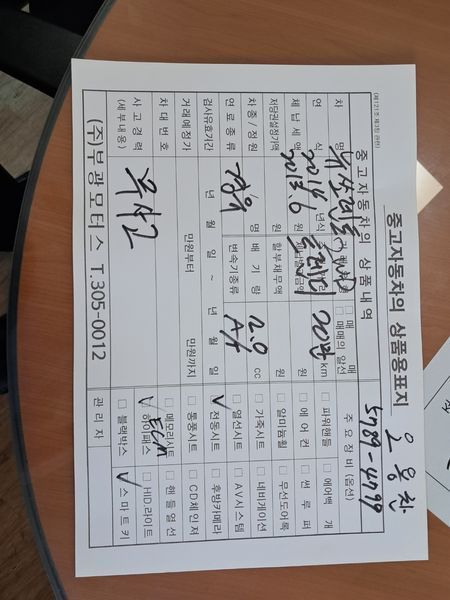 (제121조 제3항 관련)
중고자동차의 상품용표지
윤 용 찬
5789-4799
중고자동차의 상품내역
주요장비(옵션)
차 명 뉴쏘렌토
□ 매 매
□ 매매의 알선
□ 파워핸들 □ 에어백 개
연 식 2014 년식
20만 km
□ 에 어 컨 □ 썬 루 퍼
2013. 6
체 납 세 액 원
원
□ 알미늄휠 □ 무선도어록
저당권설정가액 원 할부채무액 원
□ 가죽시트 □ 네비게이션
차종 / 정원 / 명 배 기 량 2.0 cc
□ 열선시트 □ AV시스템
연 료 종 류 경유 변속기종류 A/T
☑ 전동시트 □ 후방카메라
검사유효기간 년 월 일 ~ 년 월 일
□ 통풍시트 □ CD체인저
거래예정가 만원부터 만원까지
□ 메모리시트 □ 핸들열선
차 대 번 호
ECM
☑ 하이패스 □ HD라이트
사 고 경 력
(세부내용)
무사고
□ 블랙박스 ☑ 스마트키
(주)부광모터스 T.305-0012
관 리 자